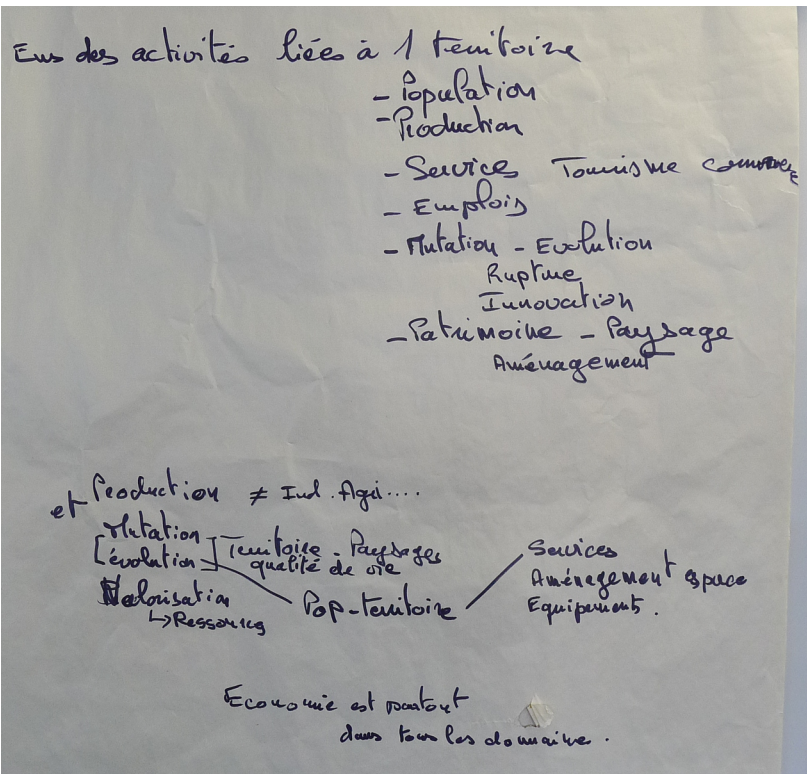 Ens des activités liées à 1 territoire
- Population
- Production
- Services Tourisme commerce
- Emplois
- Mutation - Evolution
Rupture
Innovation
- Patrimoine - Paysage
Aménagement
et Production ≠ Ind. Agri....
Mutation
l'évolution
Territoire - Paysages
qualité de vie
Valorisation
↳ Ressources
Pop-territoire
Services
Aménagement espace
Equipements.
Economie est partout
dans tous les domaine.